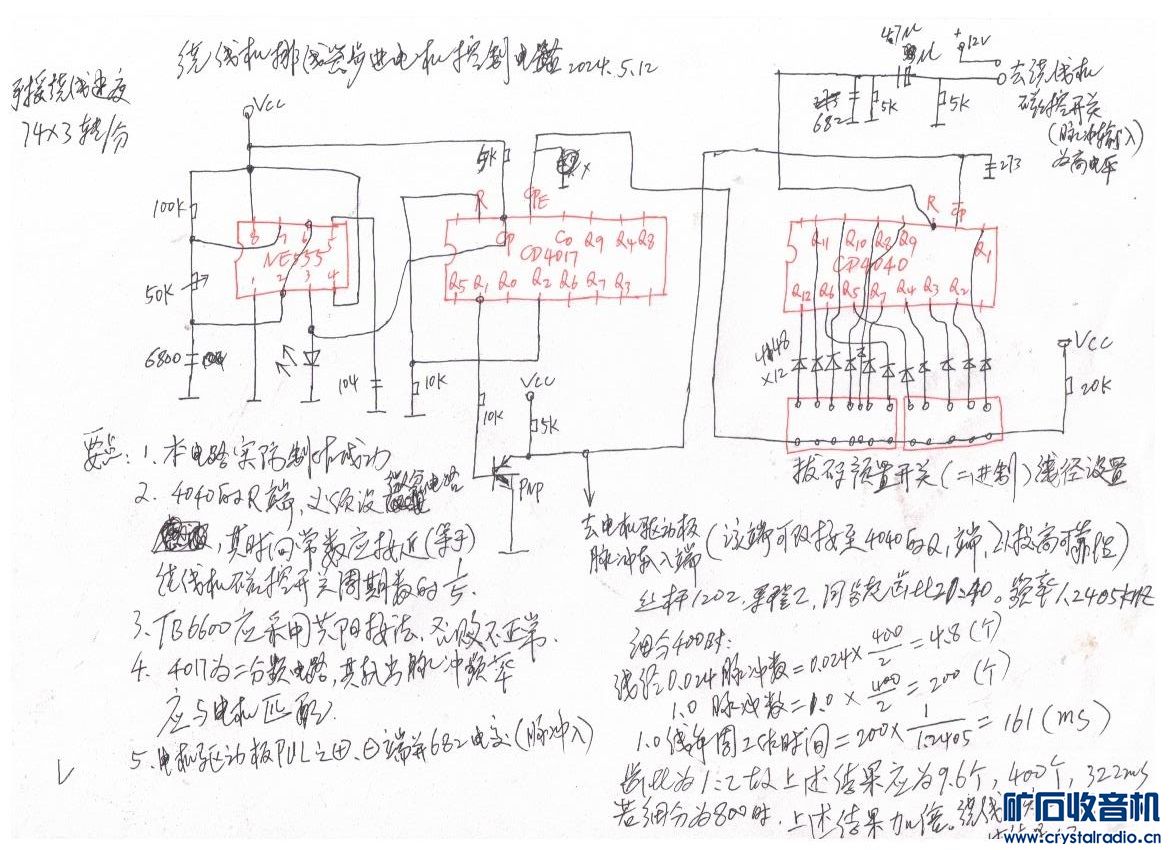 绕线机排线器步进电机控制电路 2024.5.12
接绕线速度
74×3转/分
VCC
100K
50K
6800
NE555
8 7 6 5
1 2 3 4
104
5K
R
CPE
CP C0 Q9 Q4 Q8
CD4017
Q5 Q1 Q0 Q2 Q6 Q7 Q3
10K
10K
VCC
5K
PNP
47μ
+12V
682
5K
5K
去绕线机
磁控开关
(脉冲输入)
为高电平
273
R CP
Q11 Q10 Q8 Q9 Q1
CD4040
Q12 Q6 Q5 Q7 Q4 Q3 Q2
4148
×12
VCC
20K
拔码预置开关(二进制)线径设置
要点:1.本电路实际制作成功
2.4040的R端,必须设微分电路
,其时间常数应接近(等于)
绕线机磁控开关周期数的
3.TB6600应采用共阳接法,否则不正常.
4.4017为二分频电路,其输出脉冲频率
应与电机匹配.
5.电机驱动板PUL之田、日端并682电容(脉冲入)
去电机驱动板
脉冲输入端
(该端可改接至4040的Q1端,以提高可靠性)
丝杆1202,累程2,同步轮齿比20:40。频率1.2405KHZ
细分400时:
线径0.024脉冲数=0.024×400/2=4.8(个)
1.0脉冲数=1.0×400/2=200(个)
1.0线每周工作时间=200×1/1.2405=161(ms)
齿比为1:2故上述结果应为9.6个,400个,322ms
若细分为800时,上述结果加倍。绕线
矿石收音机
www.crystalradio.cn